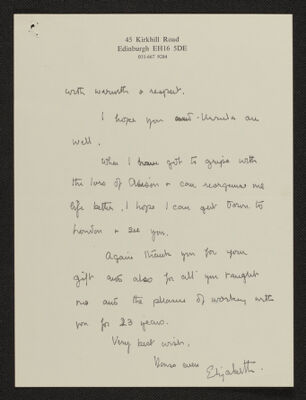 45 Kirkhill Road
Edinburgh EH16 5DE
031-667 9284
with warmth & respect.
I hope you and Ursula are
well.
When I have got to grips with
the loss of Alison & can reorganise me
life better, I hope I can get down to
London & see you.
Again thank you for your
gift and also for all you taught
me and the pleasure of working with
you for 23 years.
Very best wishes,
Yours ever
Elizabeth.